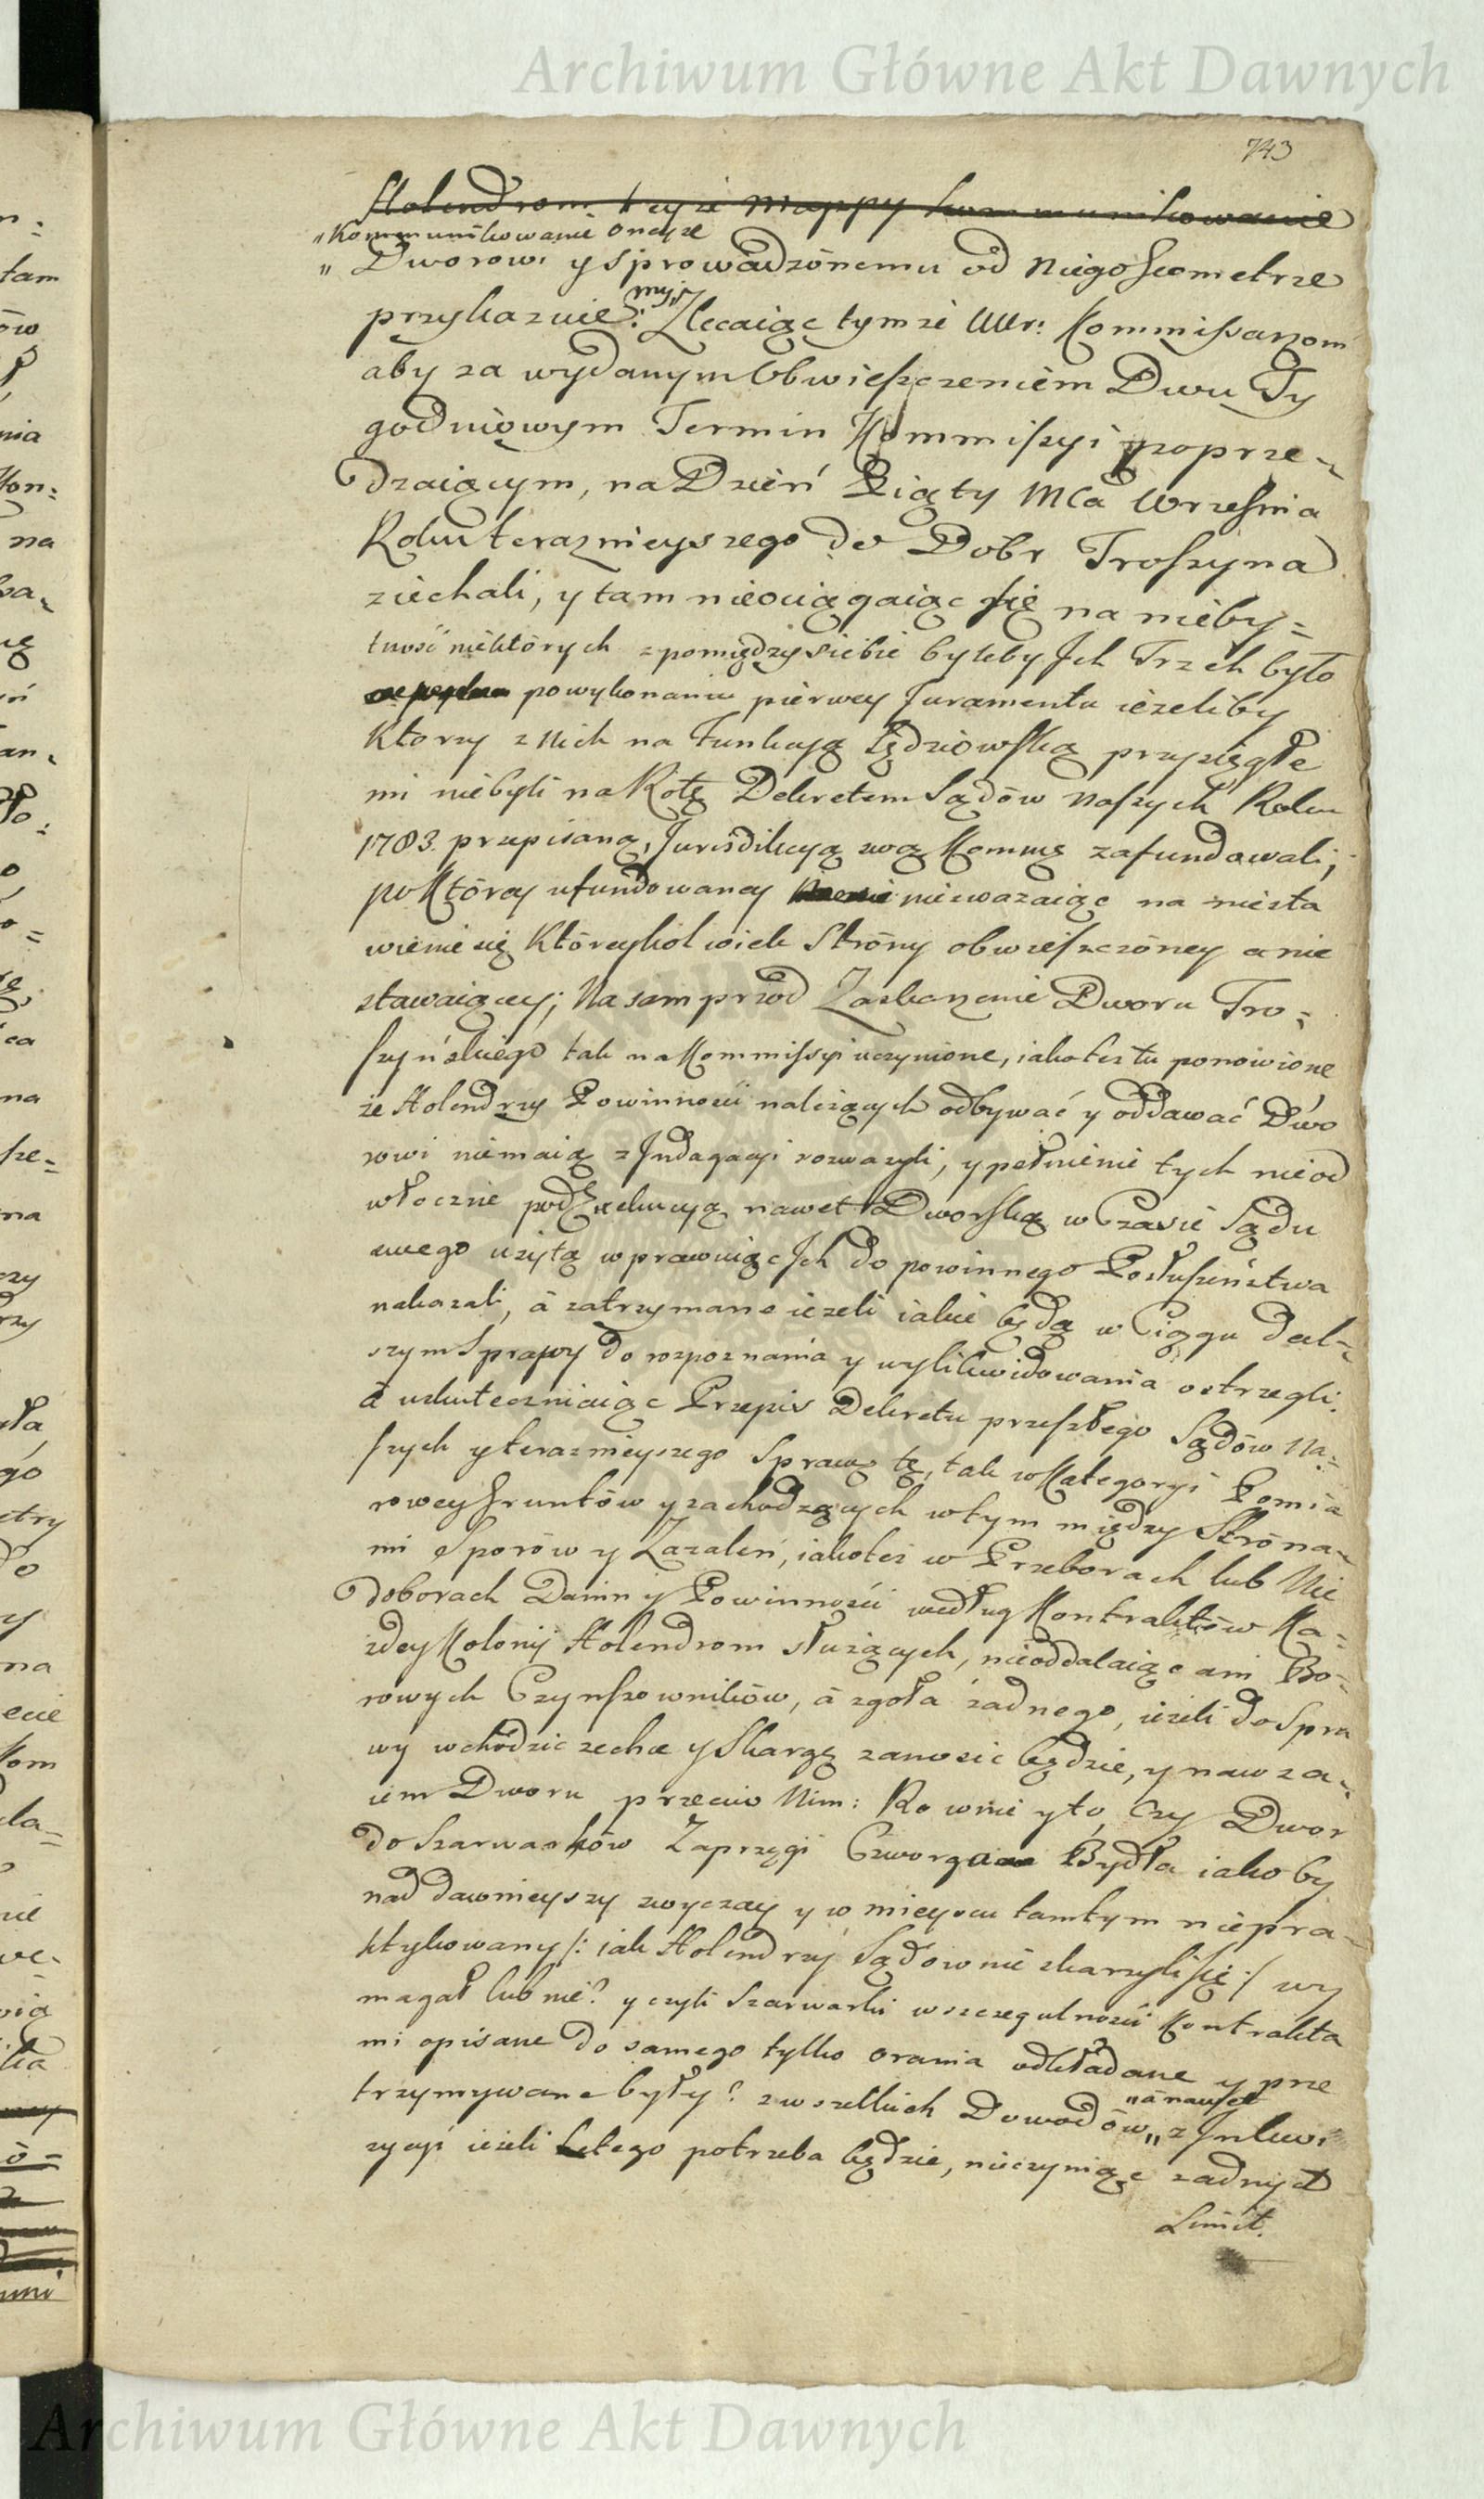 Archiwum Główne Akt Dawnych
743
Holendrom teyże Mappy kommunikowanie
„Kommunikowanie oneyże
„ Dworowi y sprowadzónemu od niego Geometrze
przykazuie:
Zlecaiąc tymże UUr: Kommissarzom
aby za wydanym Obwieszczeniem Dwu Ty
godniowym Termin Kommissyi poprze-
dzaiącym, na Dzień Piąty Mca Września
Roku terazmieyszego do Dóbr Troszyna
ziechali, y tam nieociągaiąc się na nieby=
tność niektórych z pomiędzy siebie byleby Jch Trzech było
po wykonaniu pierwey Juramentu ieżeliby
Ktorzy z nich na Funkcyą Sędziowską przysięgłe
mi niebyli na Rotę Dekretem Sądów naszych Roku
1783. przepisaną, Jurisdikcyą swą Kommą zafundowali;
po Którey ufundowaney nieuważaiąc na niesta
wienie się Któreykolwiek Stróny obwieszczóney a nie
stawaiącey; Na samprzód Zaskarzenie Dworu Tro=
szyńskiego tak na Kommissyi uczynione, iakoteż tu ponowione
że Holendrzy Powinności należących odbywać y oddawać Dwo
rowi niemaią z Jndagacyi rozważyli, y pełnienie tych nieod
włocznie pod Exekucyą nawet Dworską w Czasie Sądu
swego użytą wprawuiąc Jch do powinnego Posłuszeństwa
nakazali, à zatrzymane ieżeli iakie będą w Ciągu dal=
szym Sprawy do rozpoznania y wylikwidowania ostrzegli.
à uskuteczniaiąc Przepis Dekretu przeszłego Sądów Na=
szych y terazmieyszego Sprawę tę, tak w Kategoryi Pomia
rowey Gruntów y zachodzących w tym między Stróna=
mi Sporów y Zażaleń, iakoteż w Przeborach lub Nie
doborach Danin y Powinności według Kontraktów Ka=
żdey Kolonij Holendrom służących, nieoddalaiąc ani Bo=
rowych Czynszowników, à zgoła żadnego, ieżeli do Spra
wy wchodzić zechce y Skargę zanosić będzie, y nawza=
iem Dworu przeciw Nim: Rownie y to, Czy Dwor
do Szarwarków Zaprzęgi Czworga Bydła iakoby
nad dawnieyszy zwyczay y w mieyscu tamtym niepra=
ktykowany /: iak Holendrzy Sądownie skarzyli się :/ wy
magał lub nie? y czyli Szarwarki w szczegulności Kontrakta
mi opisane do samego tylko orania odkładane y prze
trzymywane były? z wszelkich Dowodów „ à nawet „ z Jnkwi
zycyi ieżeli tego potrzeba będzie, nieczyniąc żadnych
Limit.
Archiwum Główne Akt Dawnych